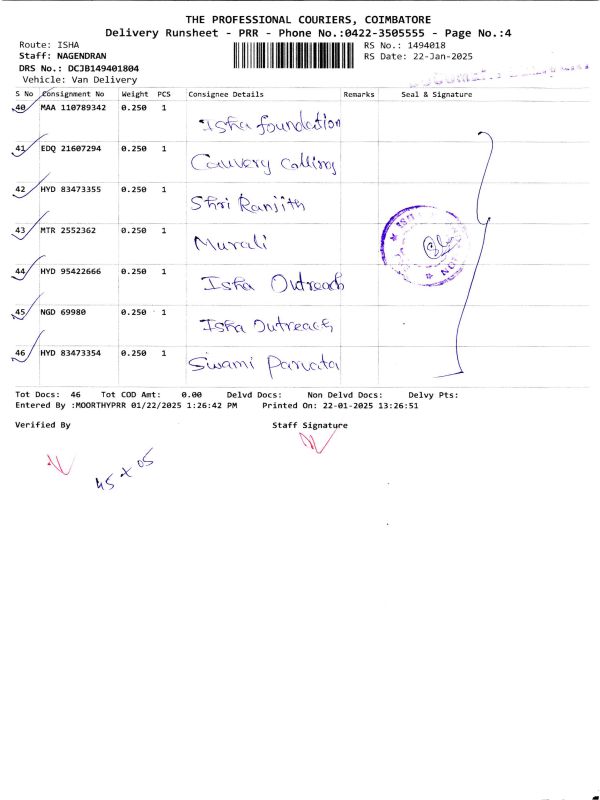 THE PROFESSIONAL COURIERS, COIMBATORE
Delivery Runsheet - PRR - Phone No.:0422-3505555 - Page No.:4
Route: ISHA RS No.: 1494018
Staff: NAGENDRAN RS Date: 22-Jan-2025
DRS No.: DCJB149401804
Vehicle: Van Delivery
S No Consignment No Weight PCS Consignee Details Remarks Seal & Signature
40 MAA 110789342 0.250 1 Isha foundation
41 EDQ 21607294 0.250 1 Cauvery Calling
42 HYD 83473355 0.250 1 Shri Ranjith
43 MTR 2552362 0.250 1 Murali
44 HYD 95422666 0.250 1 Isha Outreach
45 NGD 69980 0.250 1 Isha Outreach
46 HYD 83473354 0.250 1 Swami
Tot Docs: 46 Tot COD Amt: 0.00 Delvd Docs: Non Delvd Docs: Delvy Pts:
Entered By :MOORTHYPRR 01/22/2025 1:26:42 PM Printed On: 22-01-2025 13:26:51
Verified By Staff Signature
45 + 05